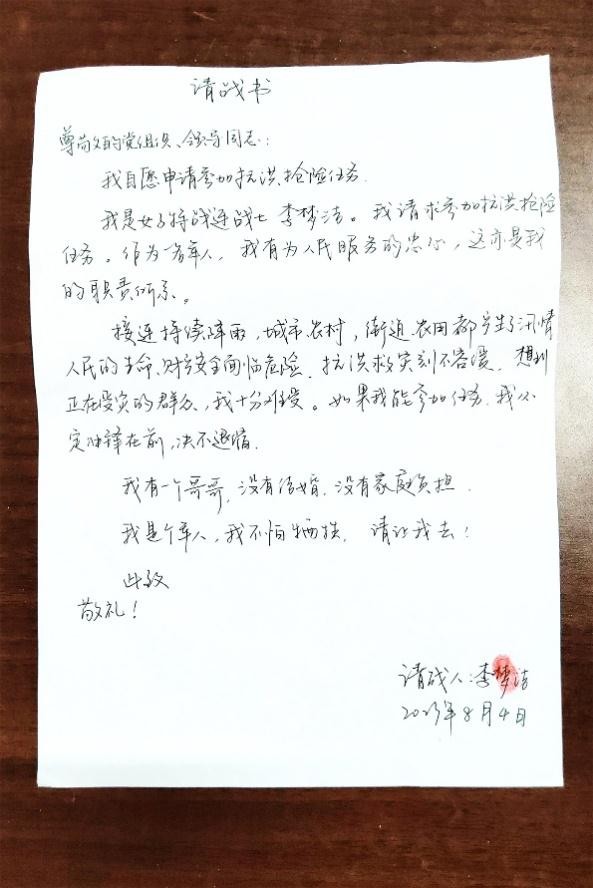 请战书
尊敬的党组织、领导同志：
我自愿申请参加抗洪抢险任务.
我是女子特战连战士 李梦洁。我请求参加抗洪抢险
任务。作为一名军人，我有为人民服务的忠心，这亦是我
的职责所系。
接连持续降雨，城市、农村，街道、农田都产生了汛情
人民的生命、财产安全面临危险. 抗洪救灾刻不容缓. 想到
正在受灾的群众，我十分难受。如果我能参加任务. 我必
定冲锋在前，决不退情.
我有一个哥哥，没有结婚. 没有家庭负担.
我是个军人，我不怕牺牲. 请让我去！
此致
敬礼！
请战人：李梦洁
2023年8月4日